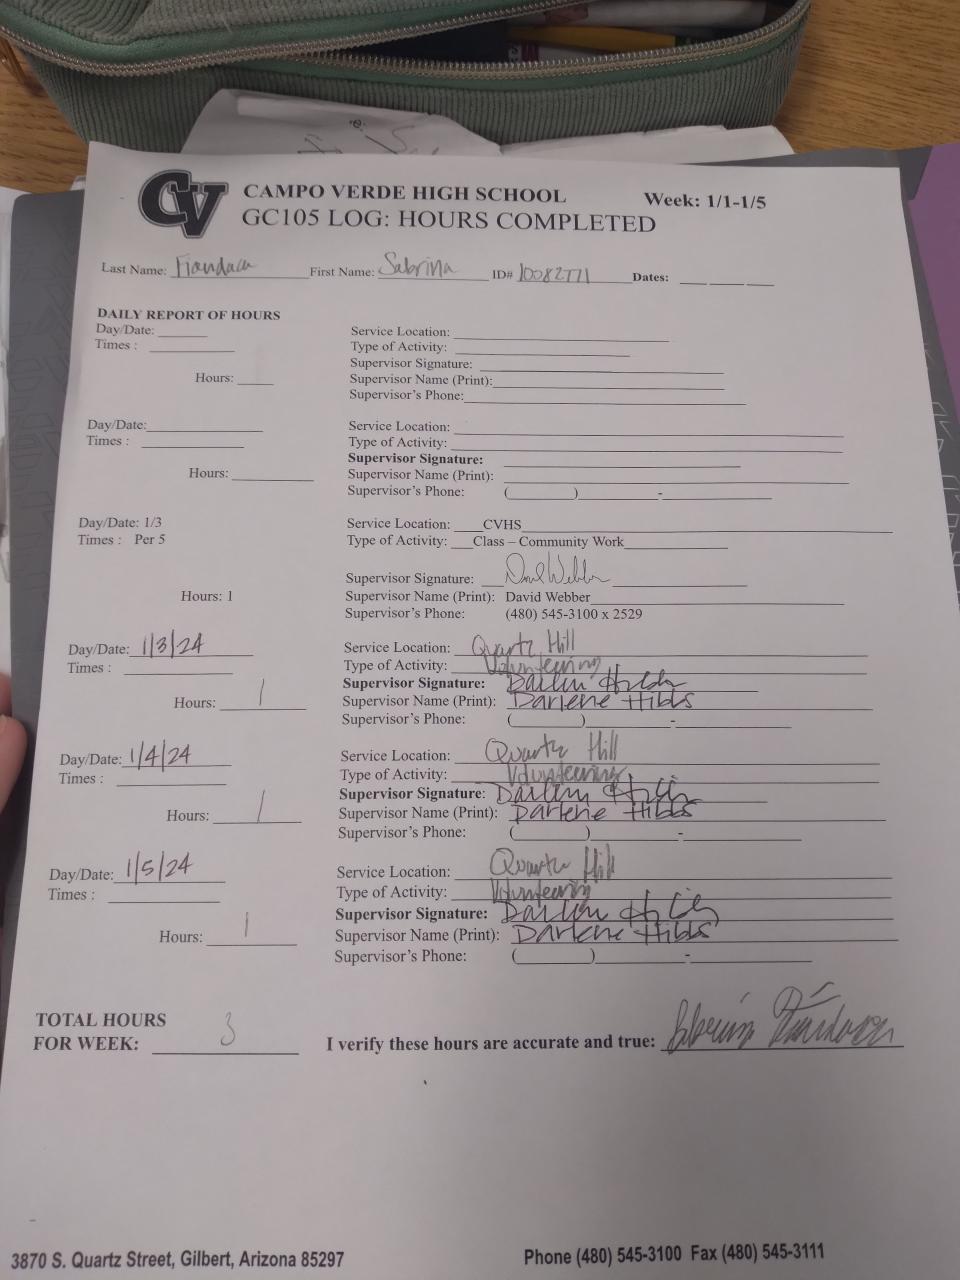 CV
CAMPO VERDE HIGH SCHOOL Week: 1/1-1/5
GC105 LOG: HOURS COMPLETED
Last Name: First Name: Sabrina ID# Dates:
DAILY REPORT OF HOURS
Day/Date: Service Location:
Times : Type of Activity:
Supervisor Signature:
Hours: Supervisor Name (Print):
Supervisor's Phone:
Day/Date: Service Location:
Times : Type of Activity:
Supervisor Signature:
Hours: Supervisor Name (Print):
Supervisor's Phone: ( ) -
Day/Date: 1/3 Service Location: CVHS
Times : Per 5 Type of Activity: Class – Community Work
Supervisor Signature:
Hours: 1 Supervisor Name (Print): David Webber
Supervisor's Phone: (480) 545-3100 x 2529
Day/Date: 1/3/24 Service Location: Quartz Hill
Times : Type of Activity: Volunteering
Supervisor Signature:
Hours: 1 Supervisor Name (Print): Darlene Hibbs
Supervisor's Phone: ( ) -
Day/Date: 1/4/24 Service Location: Quartz Hill
Times : Type of Activity: Volunteering
Supervisor Signature:
Hours: 1 Supervisor Name (Print): Darlene Hibbs
Supervisor's Phone: ( ) -
Day/Date: 1/5/24 Service Location: Quartz Hill
Times : Type of Activity: Volunteering
Supervisor Signature:
Hours: 1 Supervisor Name (Print): Darlene Hibbs
Supervisor's Phone: ( ) -
TOTAL HOURS
FOR WEEK: 3 I verify these hours are accurate and true:
3870 S. Quartz Street, Gilbert, Arizona 85297 Phone (480) 545-3100 Fax (480) 545-3111